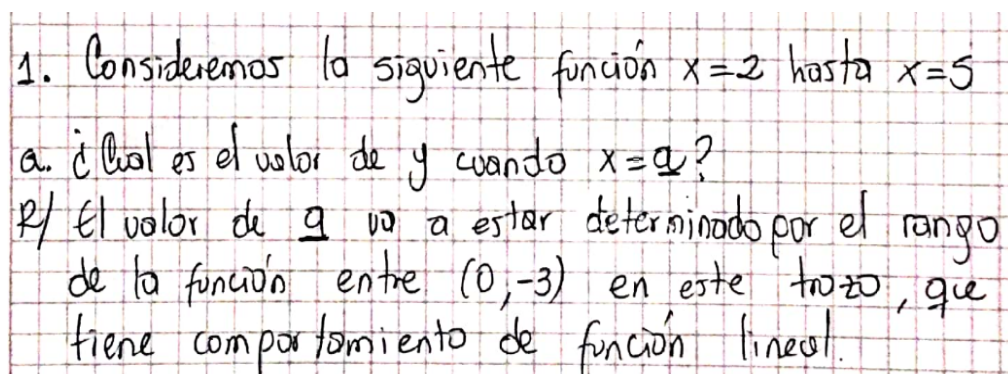 1. Consideremos la siguiente función x=2 hasta x=5
a. ¿Cual es el valor de y cuando x=a?
R/ El valor de a va a estar determinado por el rango
de la función entre (0,-3) en este trozo, que
tiene comportamiento de función lineal.